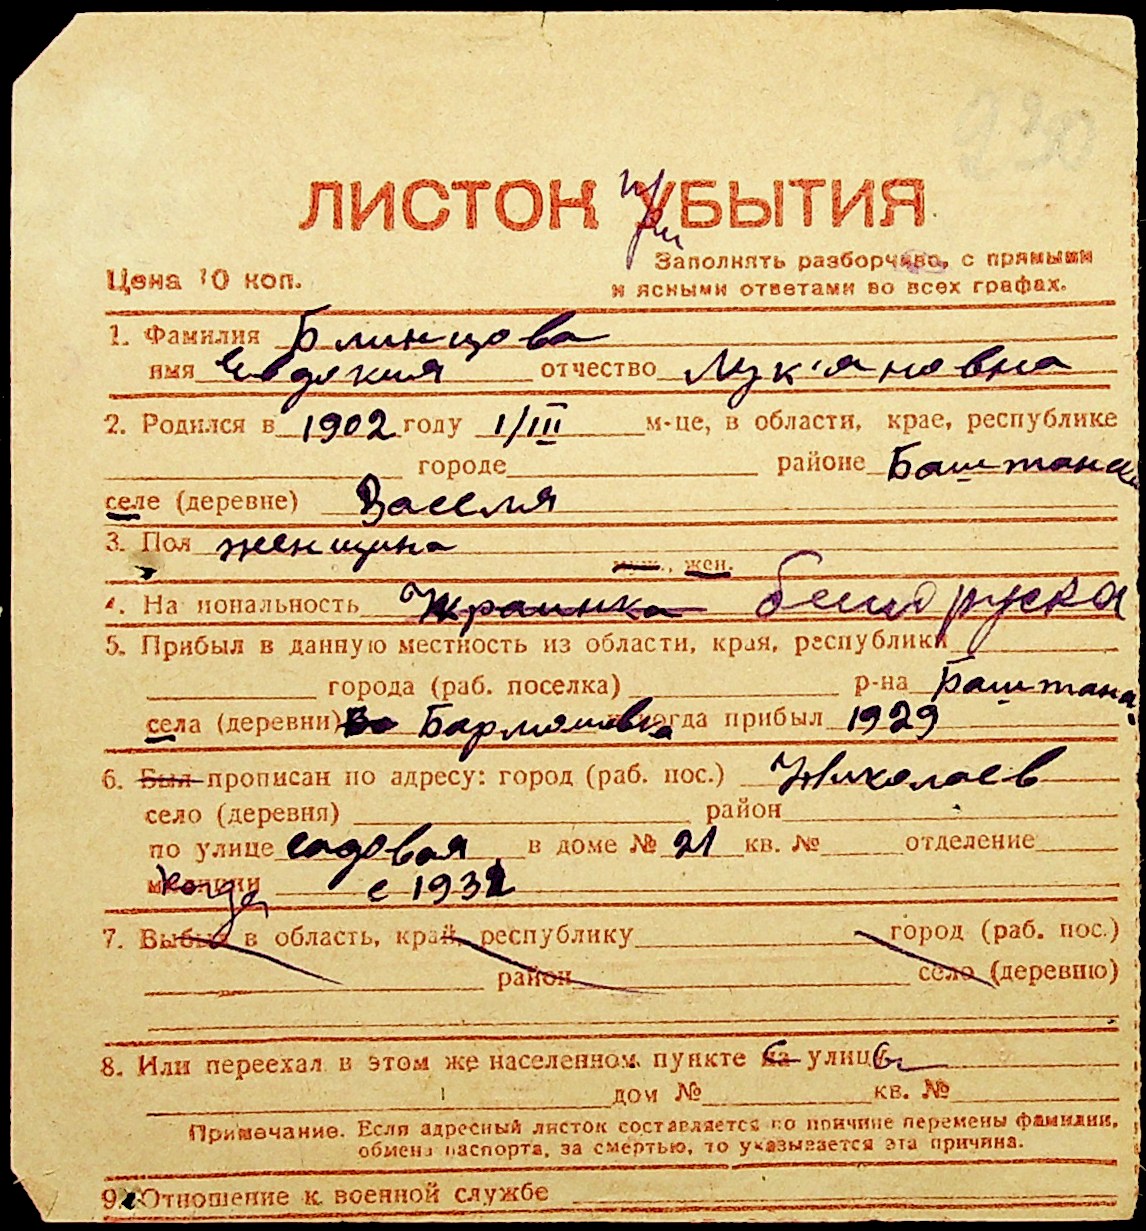 ЛИСТОК УБЫТИЯ
при
Цена 10 коп.
Заполнять разборчиво, с прямыми
и ясными ответами во всех графах.
1. Фамилия Блинцова
имя Евдокия отчество Лук'яновна
2. Родился в 1902 году 1/III м-це, в области, крае, республике
городе районе Баштанск
селе (деревне) Васелля
3. Пол женщина
муж., жен.
4. На иональность Украинка белоруска
5. Прибыл в данную местность из области, края, республики
города (раб. поселка) р-на Баштана
села (деревни) Во когда прибыл 1929
6. Был прописан по адресу: город (раб. пос.) Николаев
село (деревня) район
по улице садовая в доме № 21 кв. № отделение
милиции когда с 1932
7. Выбыл в область, край, республику город (раб. пос.)
район село (деревню)
8. Или переехал в этом же населенном пункте на улицу с
дом № кв. №
Примечание. Если адресный листок составляется по причине перемены фамилии,
обмена паспорта, за смертью, то указывается эта причина.
9. Отношение к военной службе